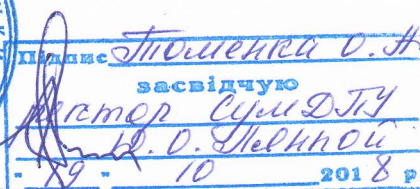 Підпис Томенка О. А
засвідчую
ректор СумДПУ
Ю. О. Лянной
" 19 " 10 2018 р